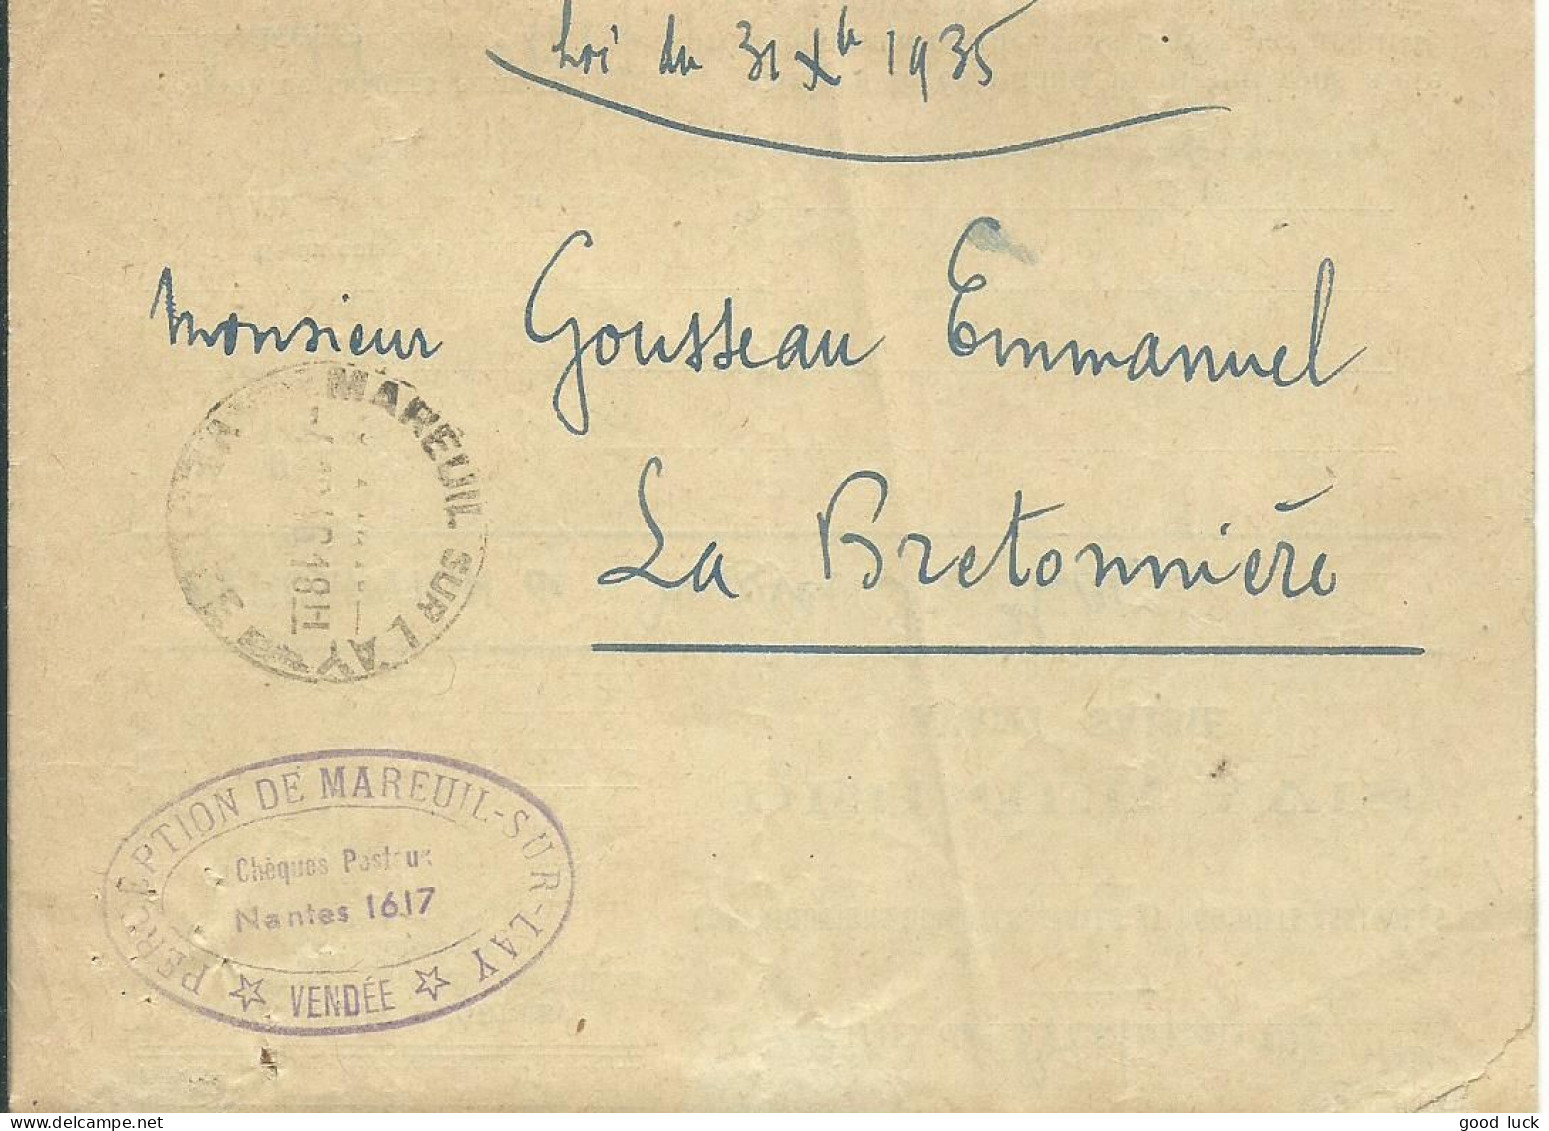 Loi du 31 Xbre 1935
Monsieur Gousseau Emmanuel
La Bretonnière
MAREUIL SUR LAY
18H
PERCEPTION DE MAREUIL-SUR-LAY
Chèques Postaux
Nantes 1617
VENDÉE
www.delcampe.net
good_luck